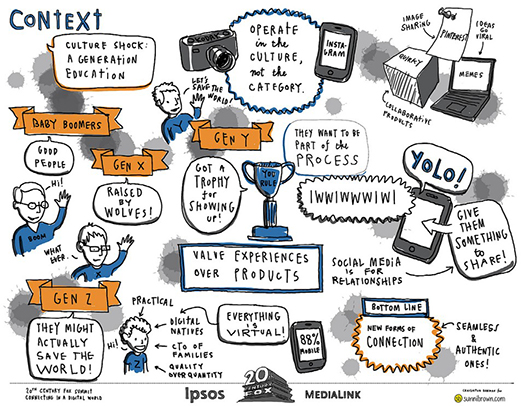 CONTEXT
CULTURE SHOCK:
A GENERATION
EDUCATION
KODAK
OPERATE
in the
CULTURE,
not the
CATEGORY.
INSTA-
GRAM
IMAGE
SHARING
PINTEREST
IDEAS
GO
VIRAL
QUIRKY
MEMES
COLLABORATIVE
PRODUCTS
LET'S
SAVE THE
WORLD!
Y
BABY BOOMERS
GOOD
PEOPLE
HI!
BOOM
GEN X
RAISED
BY
WOLVES!
WHAT
EVER.
GEN Y
GOT A
TROPHY
for
SHOWING
UP!
YOU
RULE
THEY WANT TO BE
PART of the
PROCESS
IWWIWWWIWI
YOLO!
GIVE
THEM
SOMETHING
to
SHARE!
SOCIAL MEDIA
IS FOR
RELATIONSHIPS
VALUE EXPERIENCES
OVER PRODUCTS
GEN Z
THEY MIGHT
ACTUALLY
SAVE THE
WORLD!
HI!
Z
PRACTICAL
DIGITAL
NATIVES
CTO OF
FAMILIES
QUALITY
OVER QUANTITY
EVERYTHING
is
VIRTUAL!
88%
MOBILE
BOTTOM LINE
NEW FORMS OF
CONNECTION
SEAMLESS
&
AUTHENTIC
ONES!
20TH CENTURY FOX SUMMIT
CONNECTING IN A DIGITAL WORLD
Ipsos
20
CENTURY
FOX
MEDIALINK
sunnibrown.com